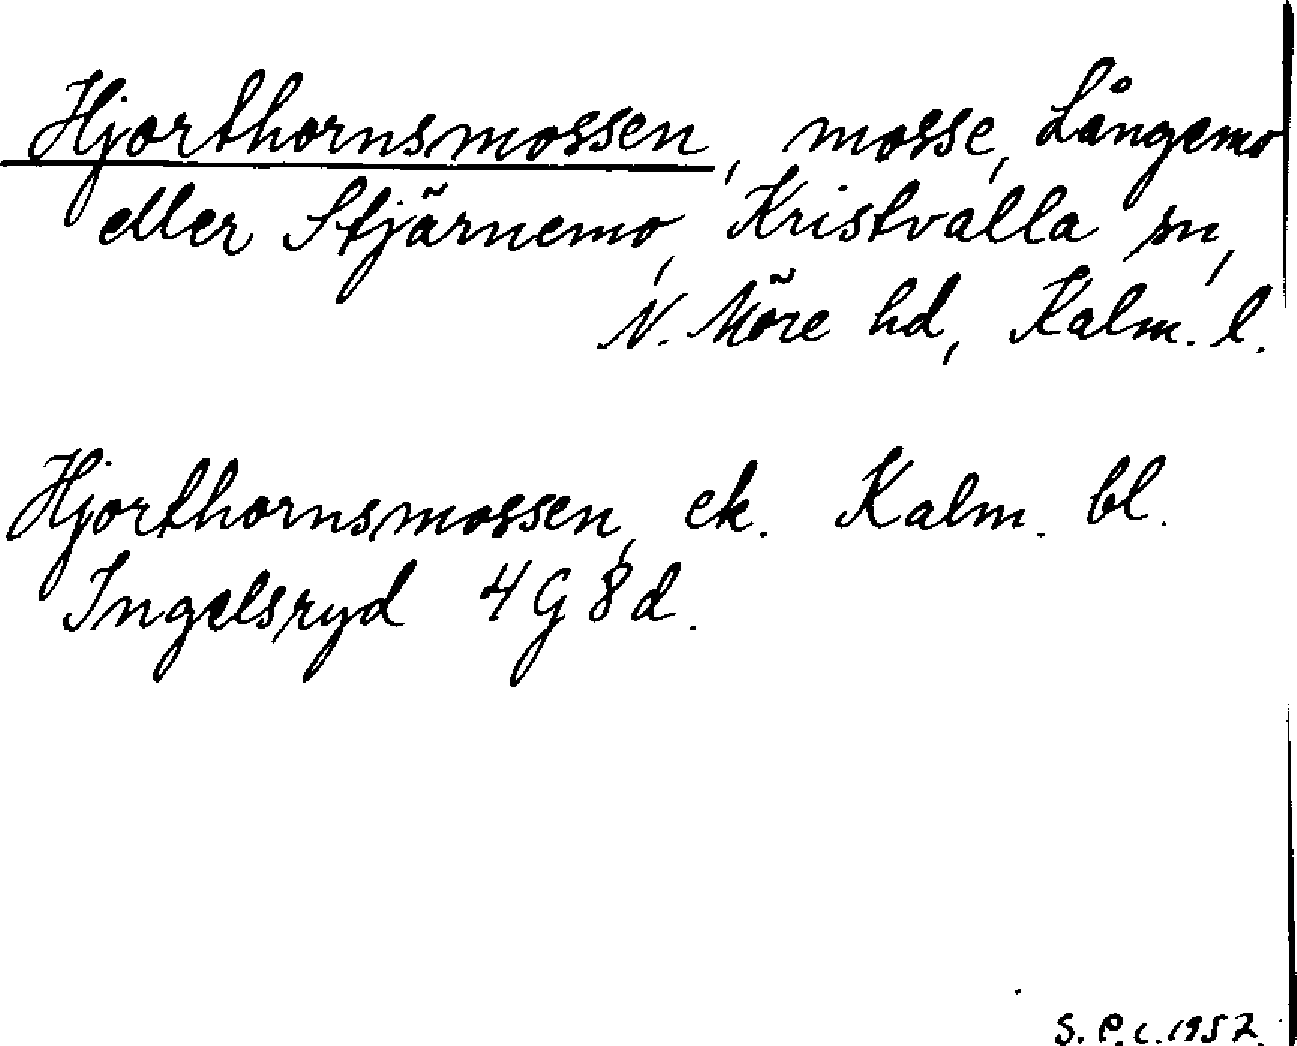 Hjorthornsmossen, mosse, Långemo
eller Stjärnemo, Kristvalla sn,
N. Möre hd, Kalm. l.
Hjorthornsmossen, ek. Kalm. bl.
Ingelsryd 4 G 8 d.
S. P. c. 1952.